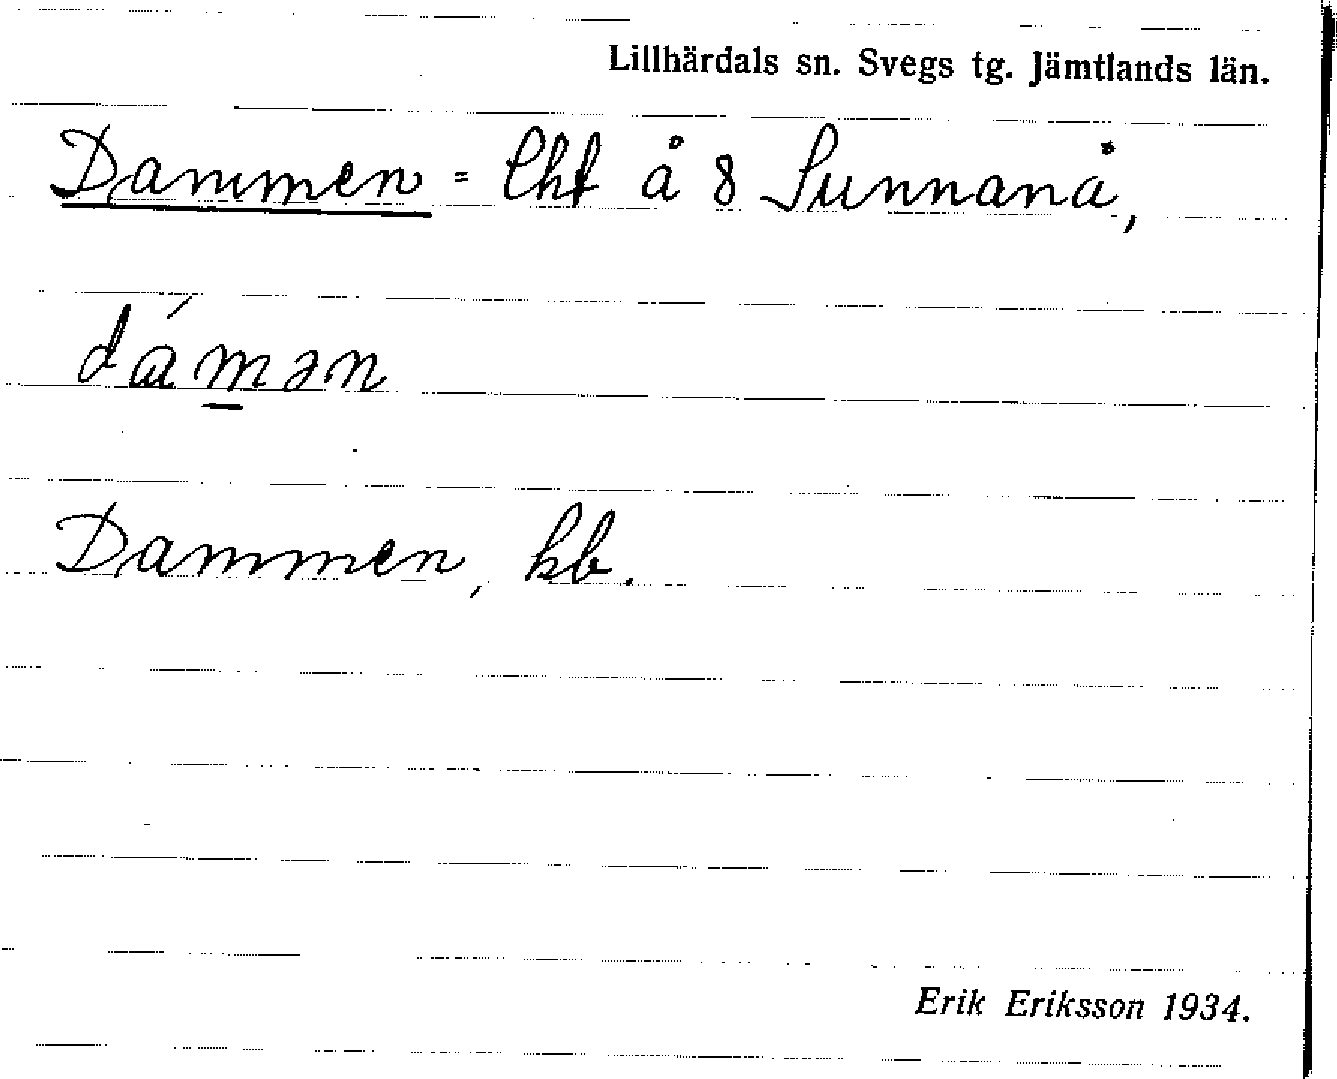 Lillhärdals sn. Svegs tg. Jämtlands län.
Dammen = lht å 8 Sunnanå,
dámən
Dammen, kb.
Erik Eriksson 1934.